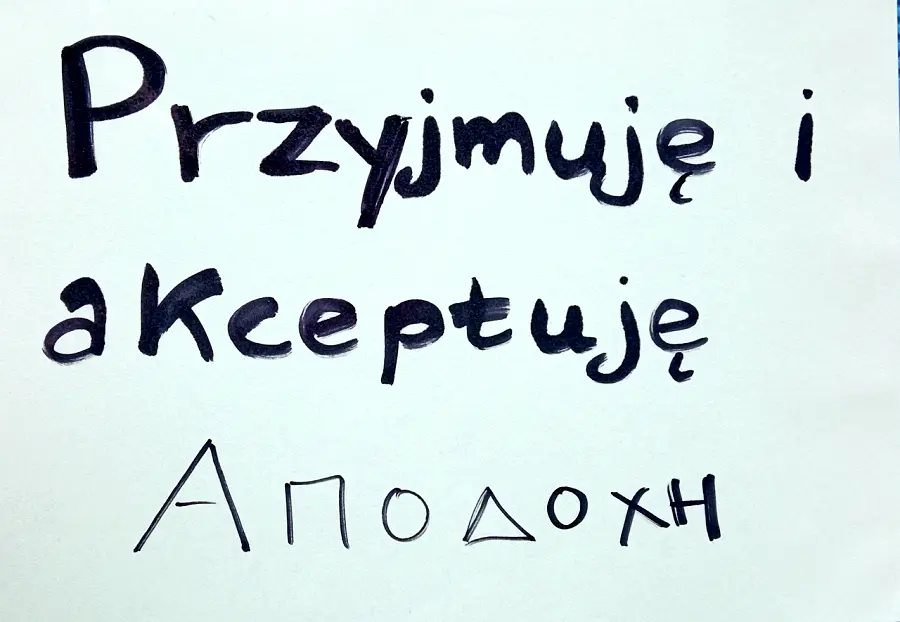 Przyjmuję i
akceptuję
Αποδοχη